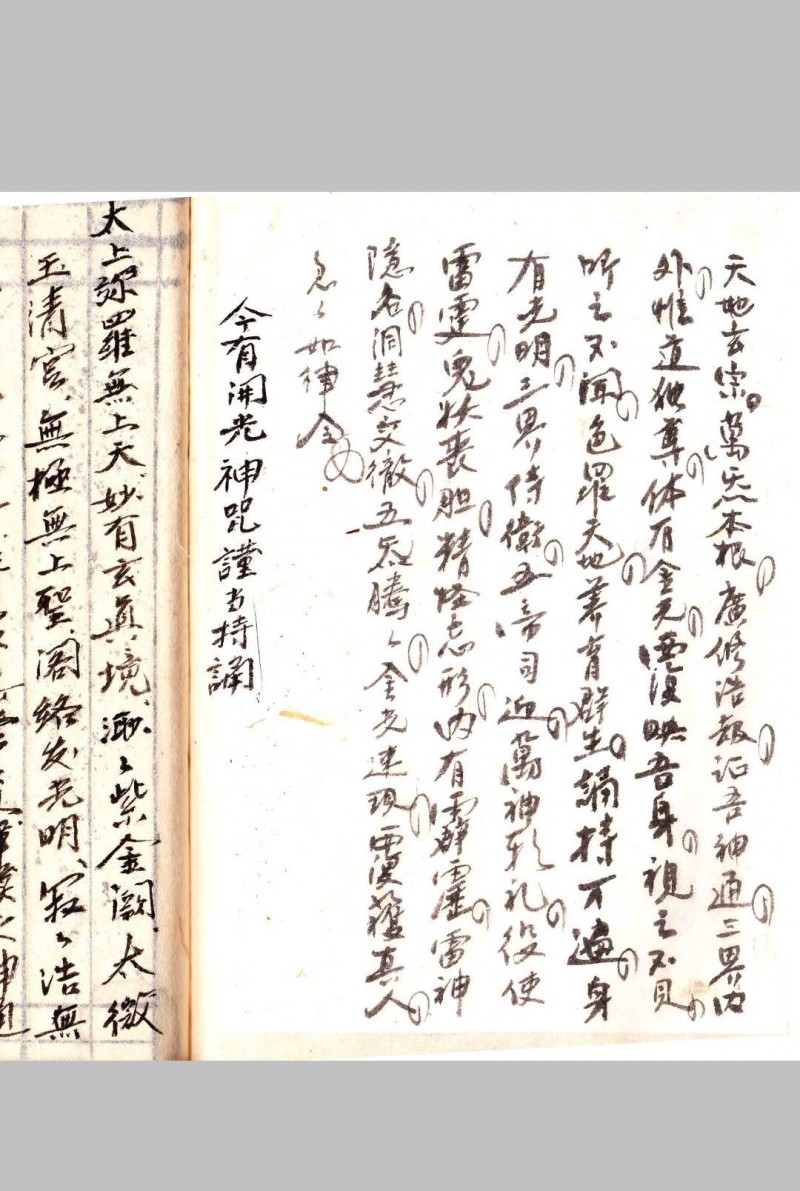 天地玄宗萬炁本根廣修浩劫证吾神通三界内
外惟道独尊体有金光覆映吾身視之不見
听之不闻包羅天地养育群生誦持万遍身
有光明三界侍衛五帝司迎萬神朝礼役使
雷霆鬼妖丧胆精怪忘形内有霹靂雷神
隱名洞慧交徹五炁騰〻金光速现覆護真人
急〻如律令
今有開光神咒謹当持誦
太上弥羅無上天妙有玄真境渺〻紫金闕太微
玉清宮無極無上聖阁絡发光明寂〻浩無